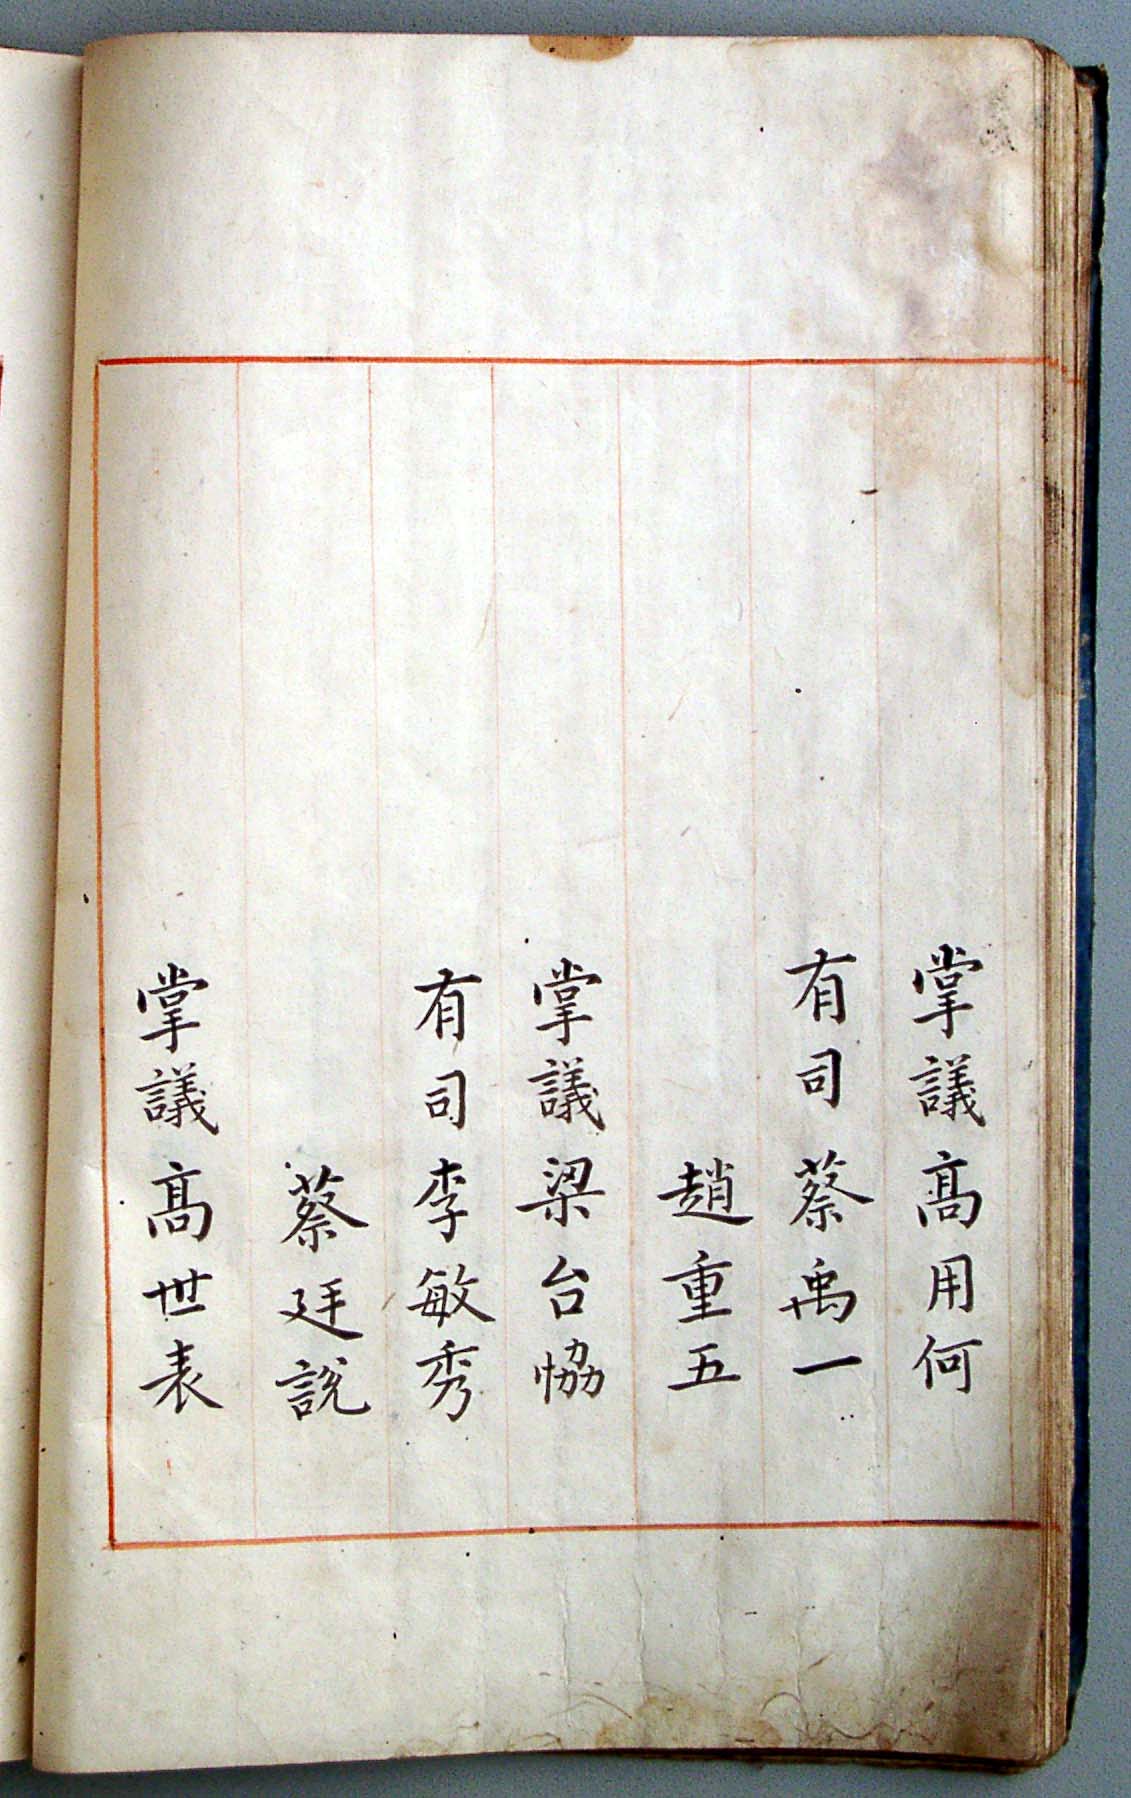 掌議高用何
有司蔡禹一
趙重五
掌議梁台恊
有司李敏秀
蔡廷說
掌議高世表